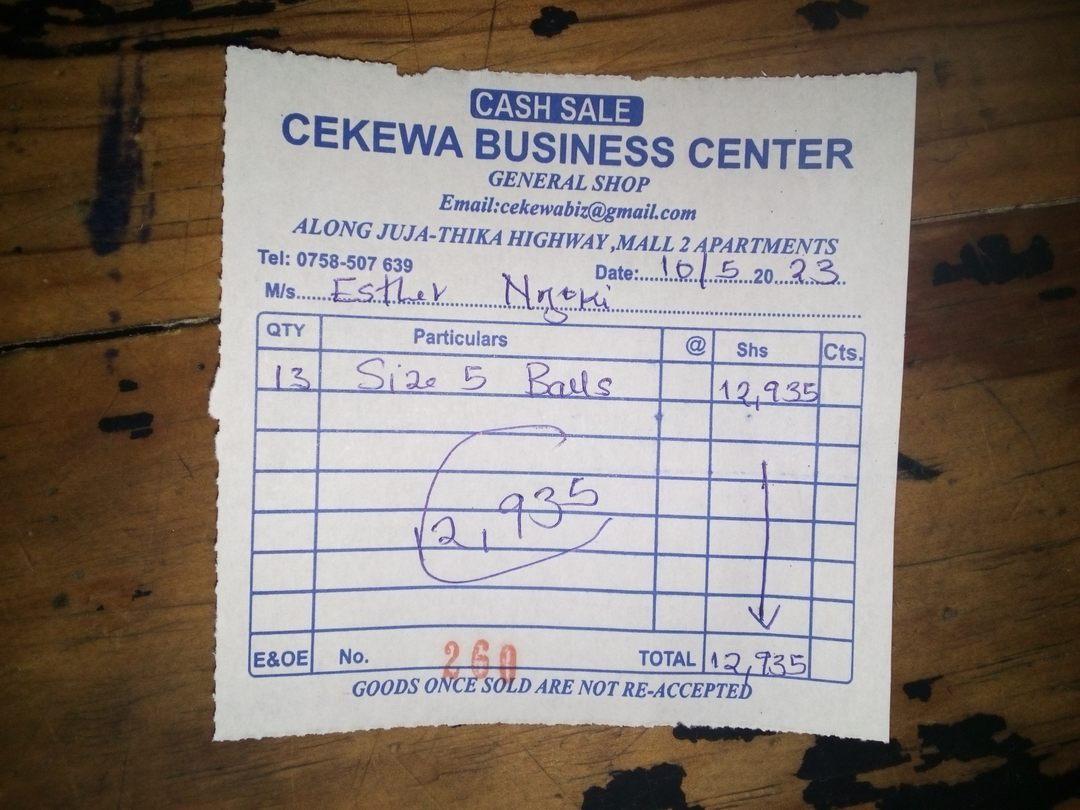 CASH SALE
CEKEWA BUSINESS CENTER
GENERAL SHOP
Email:cekewabiz@gmail.com
ALONG JUJA-THIKA HIGHWAY ,MALL 2 APARTMENTS
Tel: 0758-507 639 Date:....10/5...20...23..
M/s......Esther
QTY Particulars @ Shs Cts.
13 Size 5 Balls 12,935
12,935
E&OE No. 260 TOTAL 12,935
GOODS ONCE SOLD ARE NOT RE-ACCEPTED